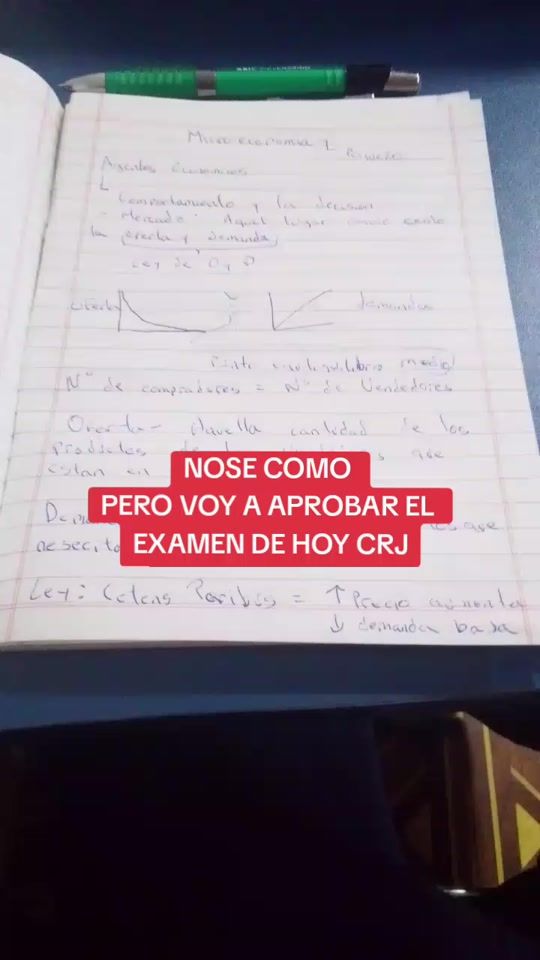 Microeconomia 1
Agentes Economicos
Comportamiento y la decision
- Mercado: Aquel lugar donde existe
la oferta y demanda
Ley de O y D
oferta
demanda
Punto equilibrio
Nº de compradores = Nº de Vendedores
Oferta - Aquella cantidad de los
productos que
estan en
NOSE COMO
PERO VOY A APROBAR EL
EXAMEN DE HOY CRJ
que
Ley: Ceteris Paribus = ↑ Precio aumenta
↓ demanda baja